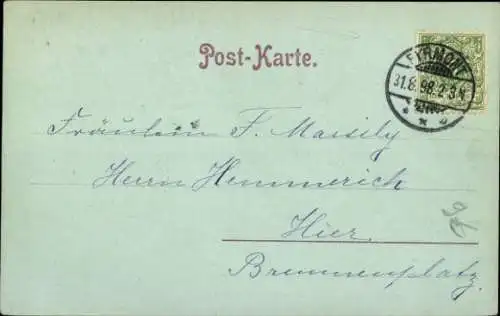 Post-Karte.
PYRMONT
31.8.98. 2-3 N
Fräulein F. Massily
Herrn Hemmerich
Hier.
Brunnenplatz.